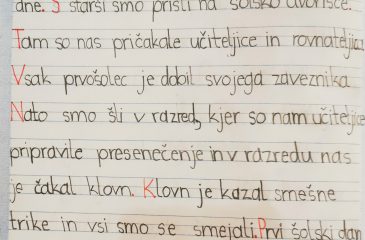 dne. S starši smo prišli na šolsko dvorišče.
Tam so nas pričakale učiteljice in rovnateljica
Vsak prvošolec je dobil svojega zaveznika
Nato smo šli v razred, kjer so nam učiteljice
pripravile presenečenje in v razredu nas
je čakal klovn. Klovn je kazal smešne
trike in vsi smo se smejali. Prvi šolski dan